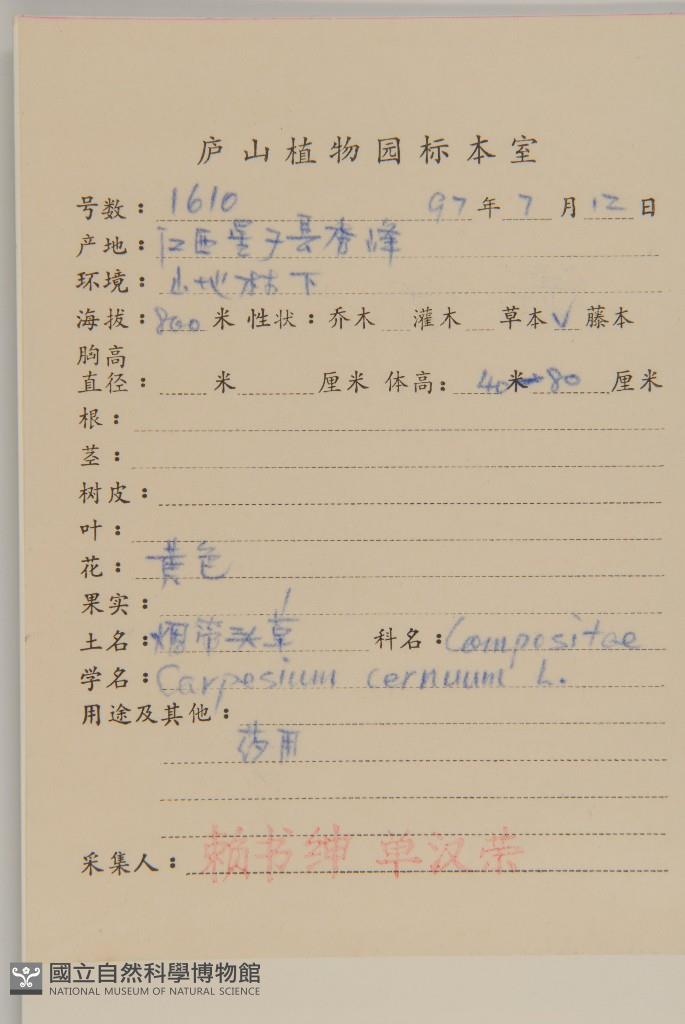 庐山植物园标本室
号数：1610 97年7月12日
产地：江西星子县秀峰
环境：山地林下
海拔：800米 性状：乔木 灌木 草本√ 藤本
胸高
直径： 米 厘米 体高： 40米-80厘米
根：
茎：
树皮：
叶：
花：黄色
果实：
土名：烟带头草 科名：Compositae
学名：Carpesium cernuum L.
用途及其他：
药用
采集人：赖书绅 单汉荣
國立自然科學博物館
NATIONAL MUSEUM OF NATURAL SCIENCE